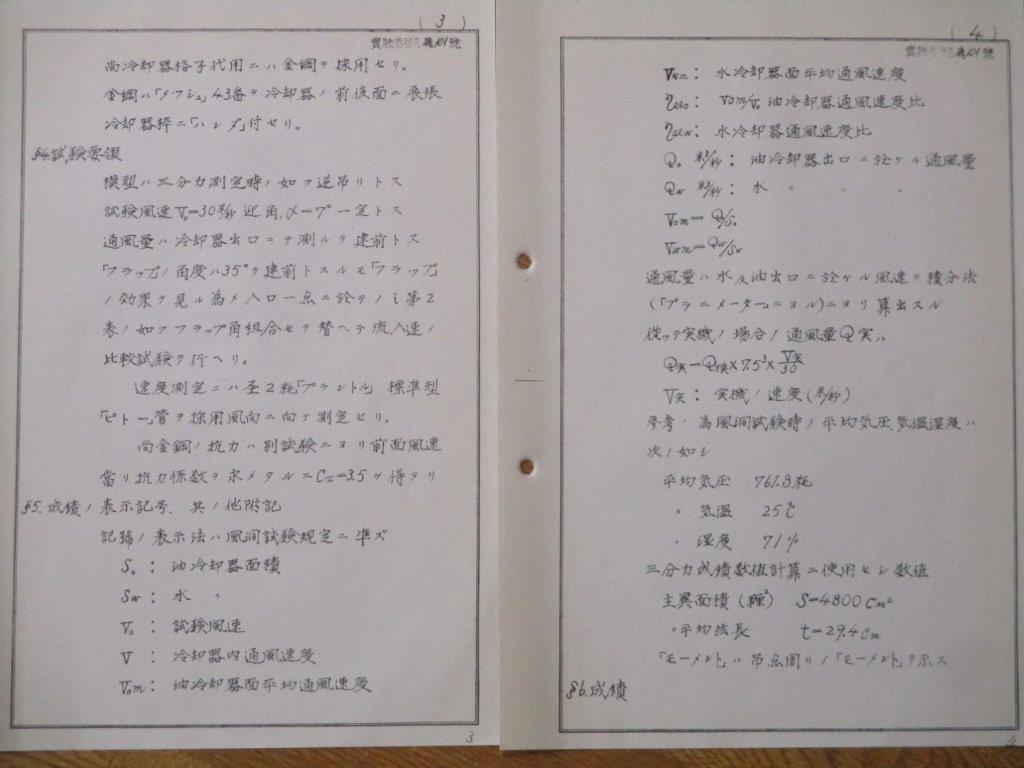 (3)
實驗番号3義101號
尚冷却器格子代用ニハ金鋼ヲ採用セリ。
金鋼ハ「メツシュ」43番ヲ冷却器ノ前後面ニ展張
冷却器枠ニ「ハンダ」付セリ。
§4.試験要領
模型ハ三分力測定時ノ如ク逆吊リトス
試験風速V₀=30米/秒 迎角、〆一プ一定トス
通風量ハ冷却器出口ニテ測ルヲ建前トス
「フラップ」ノ角度ハ35°ヲ建前トスルモ「フラップ」
ノ効果ヲ見ル為メ入口一点ニ於テノミ第2
表ノ如クフラップ角組合セヲ替ヘテ流入速ノ
比較試験ヲ行ヘリ。
速度測定ニハ径2粍「プラントル」標準型
「ピトー」管ヲ採用風向ニ向ケ測定セリ。
尚金鋼ノ抗力ハ別試験ニヨリ前面風速
當リ抗力係数ヲ求メタルニCx=3.5ヲ得タリ
§5.成績ノ表示記号. 其ノ他附記
記號ノ表示法ハ風洞試験規定ニ準ズ
S₀: 油冷却器面積
Sw: 水 〃
V₀: 試験風速
V: 冷却器内通風速度
Vom: 油冷却器面平均通風速度
3
(4)
義101號
Vwm: 水冷却器面平均通風速度
Vom/V₀ 油冷却器通風速度比
水冷却器通風速度比
Q₀ 米³/秒: 油冷却器出口ニ於ケル通風量
Qw 米³/秒: 水 〃 〃 〃
Vom=Q₀/S₀
Vwm=Qw/Sw
通風量ハ水及油出口ニ於ケル風速ヲ積分法
(「プラニメーター」ニヨル)ニヨリ算出スル
従ッテ実機ノ場合ノ通風量Q実ハ
Q実=Q模×7.5³×V実/30
V実: 実機ノ速度(米/秒)
参考ノ為風洞試験時ノ平均気圧、気温湿度ハ
次ノ如シ
平均気圧 761.8粍
〃 気温 25℃
〃 湿度 71%
三分力成績数値計算ニ使用セシ数値
主翼面積(模型) S=4800cm²
〃平均弦長 t=29.4cm
「モーメント」ハ吊点周リノ「モーメント」ヲ示ス
§6.成績
4